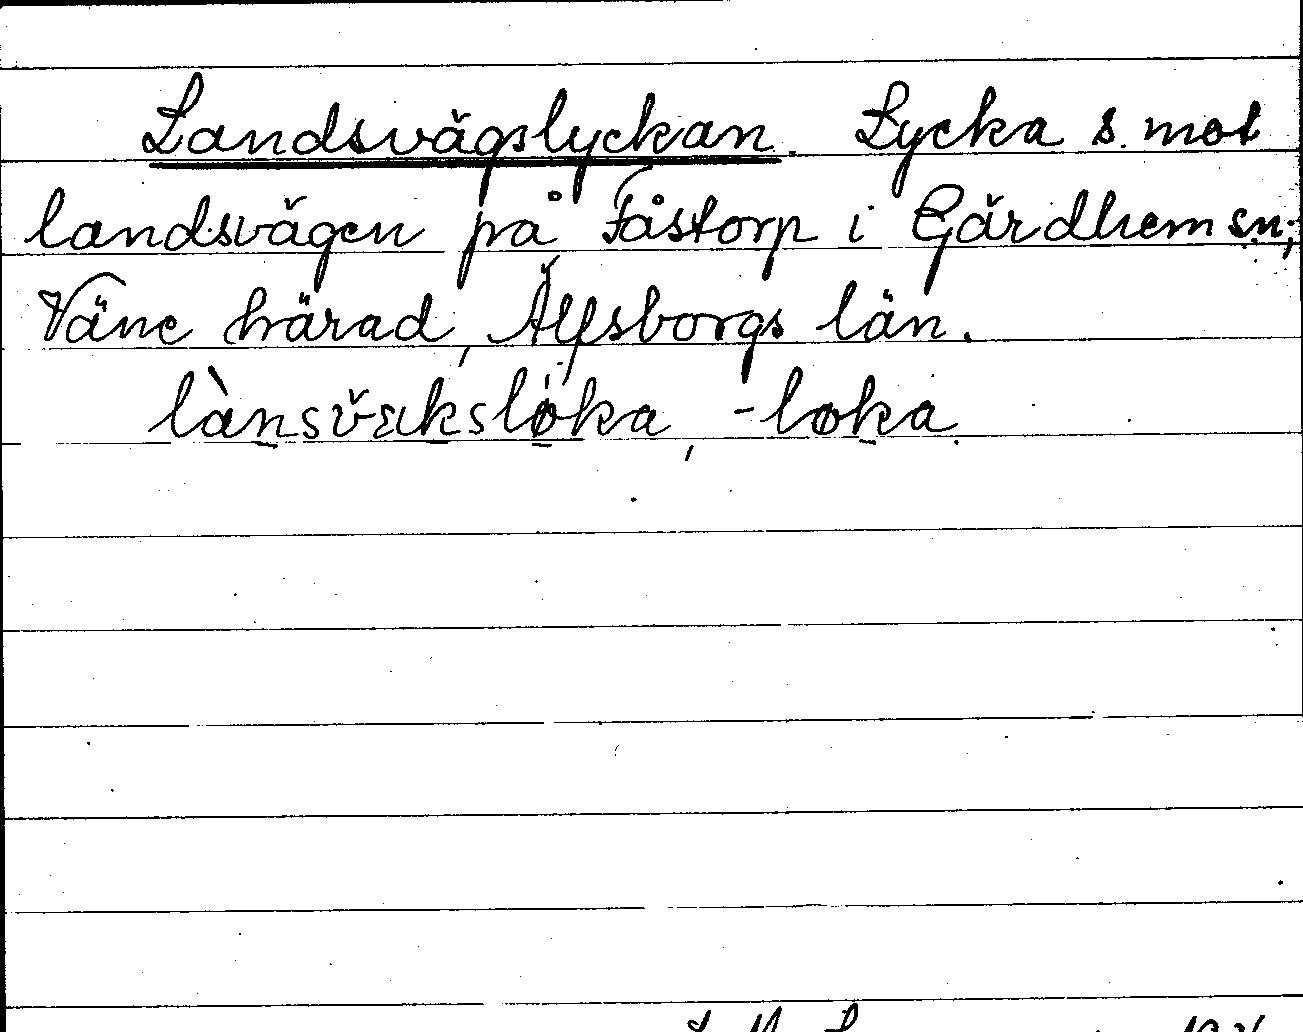 Landsvägslyckan. Lycka s. mot
landsvägen på Fåstorp i Gärdhem sn;
Väne härad, Älfsborgs län.
lànsvæksløka, -loka.